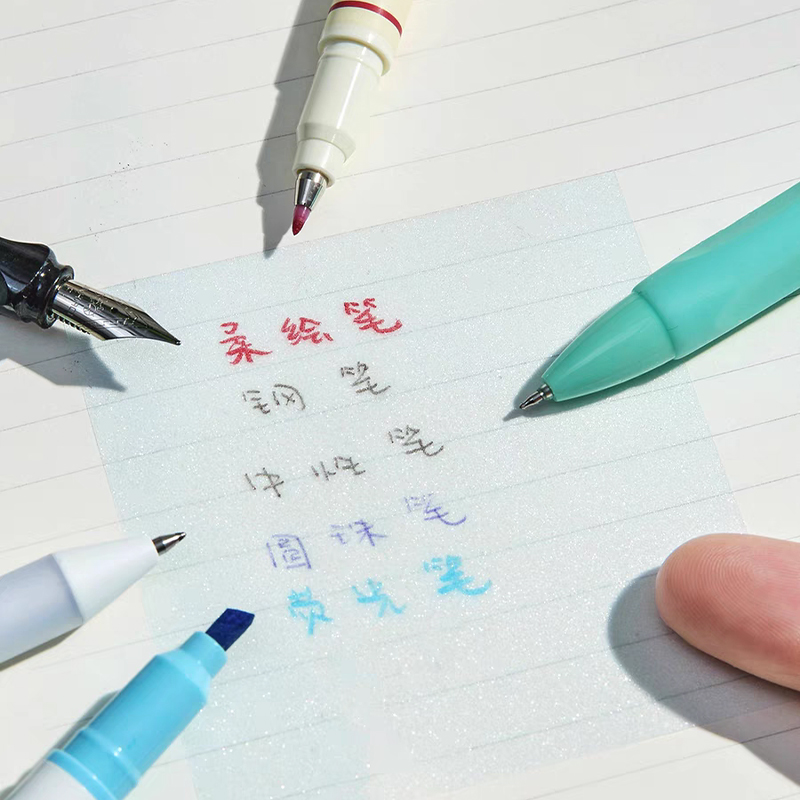 柔绘笔
钢笔
中性笔
圆珠笔
荧光笔